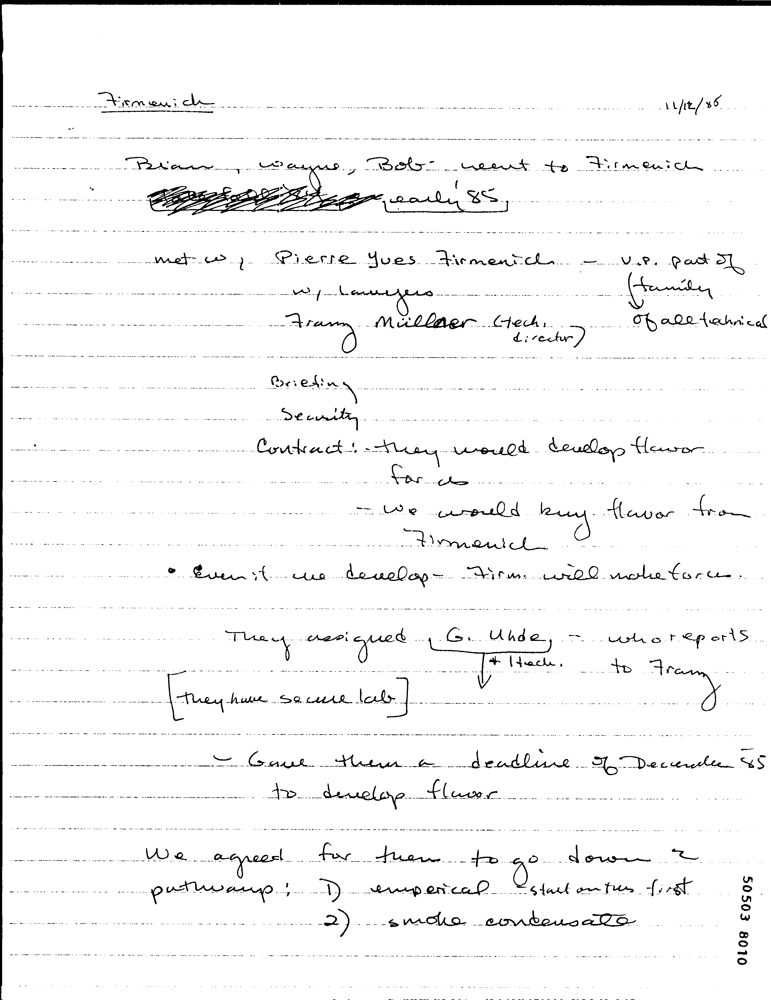 Firmenich 11/12/86
Brian, Wayne, Bob - went to Firmenich
early '85,
met w/ Pierre Yves Firmenich - V.P. part of
w/ Lawyers family
Franz Müllner (tech. of all technical
director)
Briefing
Security
Contract: - they would develop flavor
for us
- we would buy flavor from
Firmenich
• Even if we develop - Firm. will make for us.
They assigned G. Uhde, - who reports
+ 1 tech. to Franz
[they have secure lab]
- Gave them a deadline of December 85
to develop flavor
We agreed for them to go down 2
pathways: 1) emperical - start on this first
2) smoke condensate
50503 8010